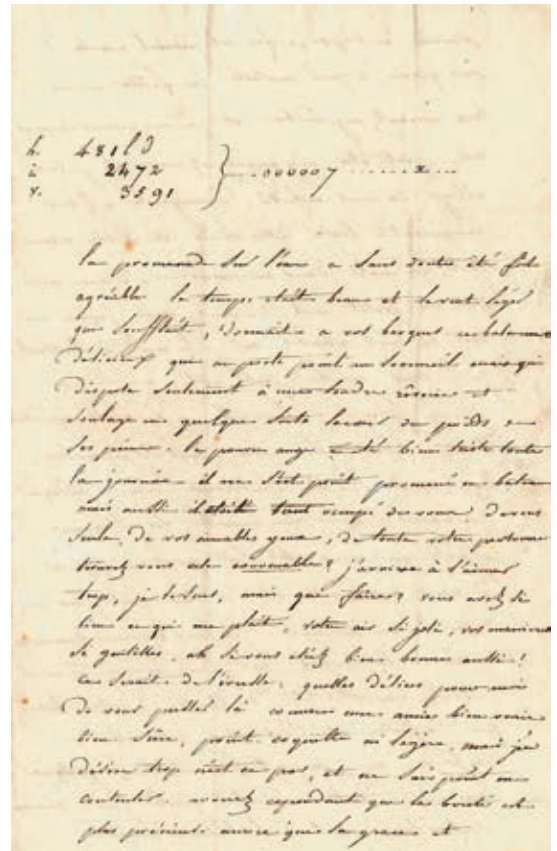 h. 481ld
i. 2472 } ....000007.......x...
r. 3591
la promenade sur l'eau a sans doute été fort
agréable le temps était beau et le vent léger
qui soufflait, donnait a vos barques ce balancement
délicieux que ne porte point au sommeil mais qui
dispose seulement à une tendre rêverie et
soulage en quelque sorte le cœur du poids de
ses peines. le pauvre ange a été bien triste toute
la journée il ne s'est point promené en bateau
mais aussi il était tout occupé de vous de vous
seule, de vos aimables yeux, de toute votre personne
trouvez vous cela convenable? j'arrive à t'aimer
trop, je le sens, mais que faire? vous avez si
bien ce qui me plait, votre air si joli, vos manières
si gentilles, ah si vous étiez bien bonne aussi!
ce serait délicieux. quelles délices pour moi
de vous parler là comme une amie bien vraie
bien sûre, point coquette ni légère, mais j'en
désire trop n'est ce pas, et ne sais point me
contenter. avouez cependant que la bonté est
plus précieuse encore que la grace et